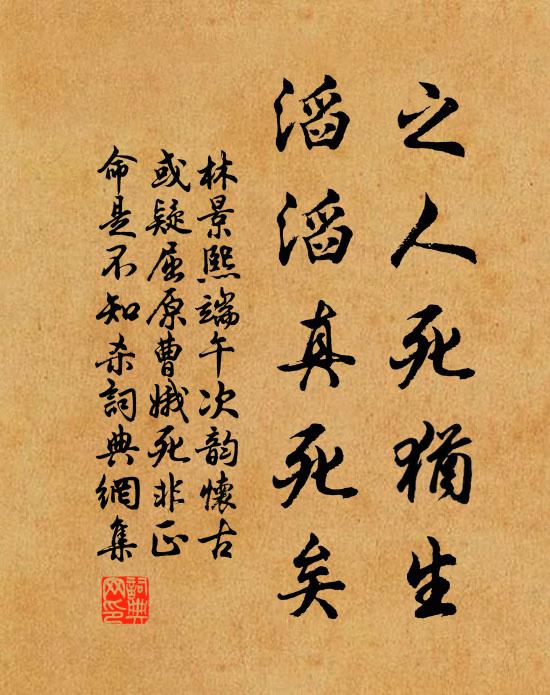 之人死猶生
滔滔真死矣
林景熙端午次韵懷古
或疑屈原曹娥死非正
命是不知杀詞典網集
詞典網印